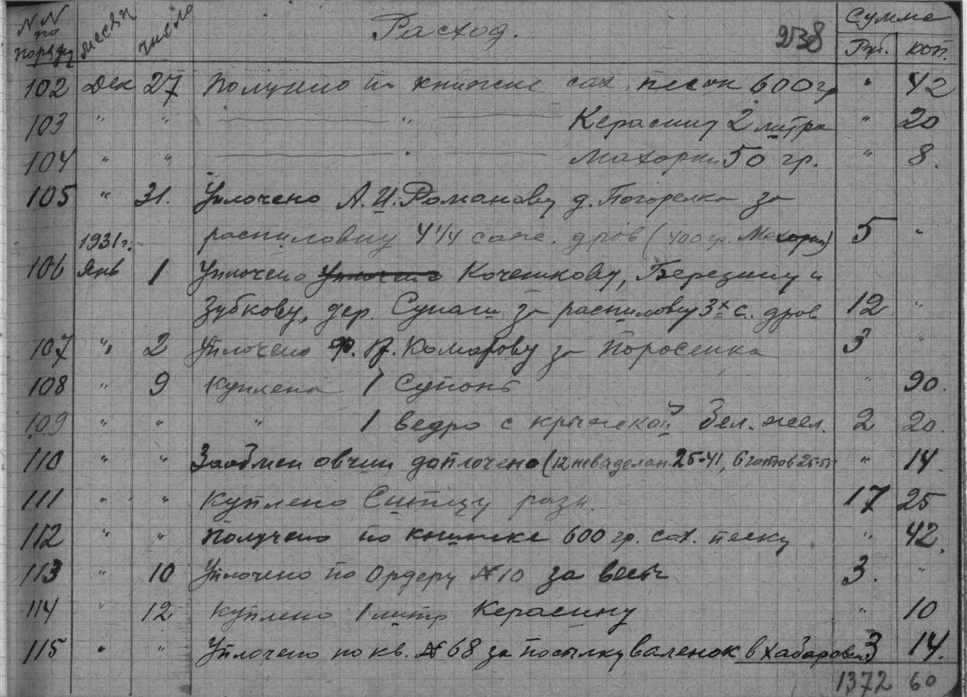 NN по порядку месяц число Расход. 2538 Сумма Руб. коп.
102 Дек 27 Получено по книжке сах. песок 600 гр " 42
103 " " " Керасину 2 литра " 20
104 " " " Махорки 50 гр. " 8.
105 " 31. Уплочено А. И. Романову д. Погорелка за
1931 г. распиловку 4 1/4 саже. дров (400 гр. Махорки) 5 "
106 Янв 1 Уплочено Уплочено Кочешкову, Березину и
Зубкову, дер. за распиловку 3х с. дров 12 "
107 " 2 Уплочено Комарову за Поросенка 3 "
108 " 9 Куплена 1 Супонь " 90.
109 " " " 1 ведро с крышкой бел. жел. 2 20.
110 " " За обмен овчин доплочено (12 невыделан. 25-41, 6 готов " 14.
111 " " Куплено Ситцу разн. 17 25
112 " " Получено по книжке 600 гр. сах. песку " 42.
113 " 10 Уплочено по Ордеру № 10 за 3. "
114 " 12 Куплено 1 литр Керасину " 10
115 " " Уплочено по кв. № 68 за посылку валенок в Хабаровск 3 14.
1372 60